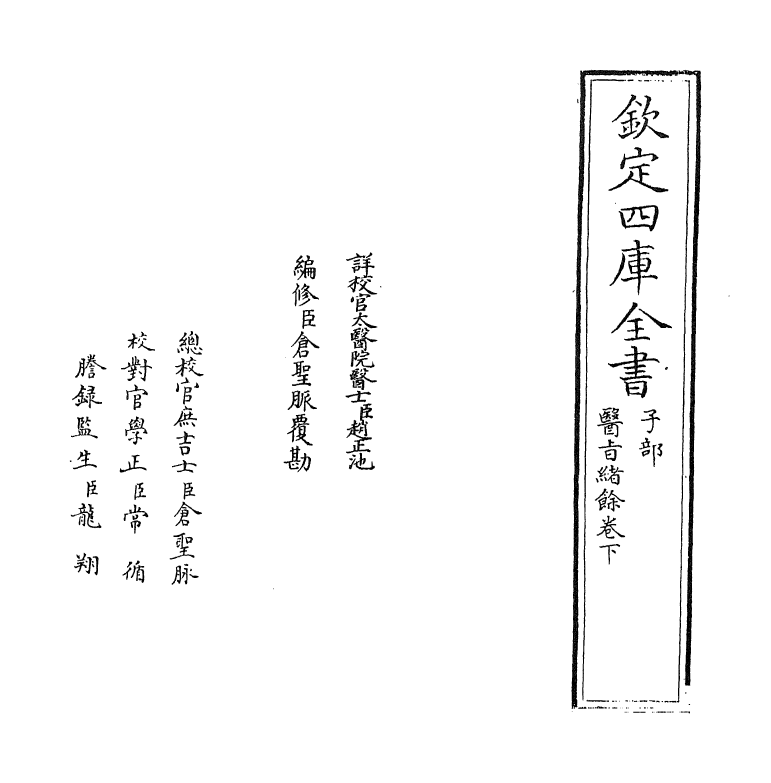 欽定四庫全書
子部
醫旨緒餘卷下
詳校官太醫院醫士臣趙正池
編修臣倉聖脈覆勘
總校官庶吉士臣倉聖脉
校對官學正臣常循
謄録監生臣龍翔